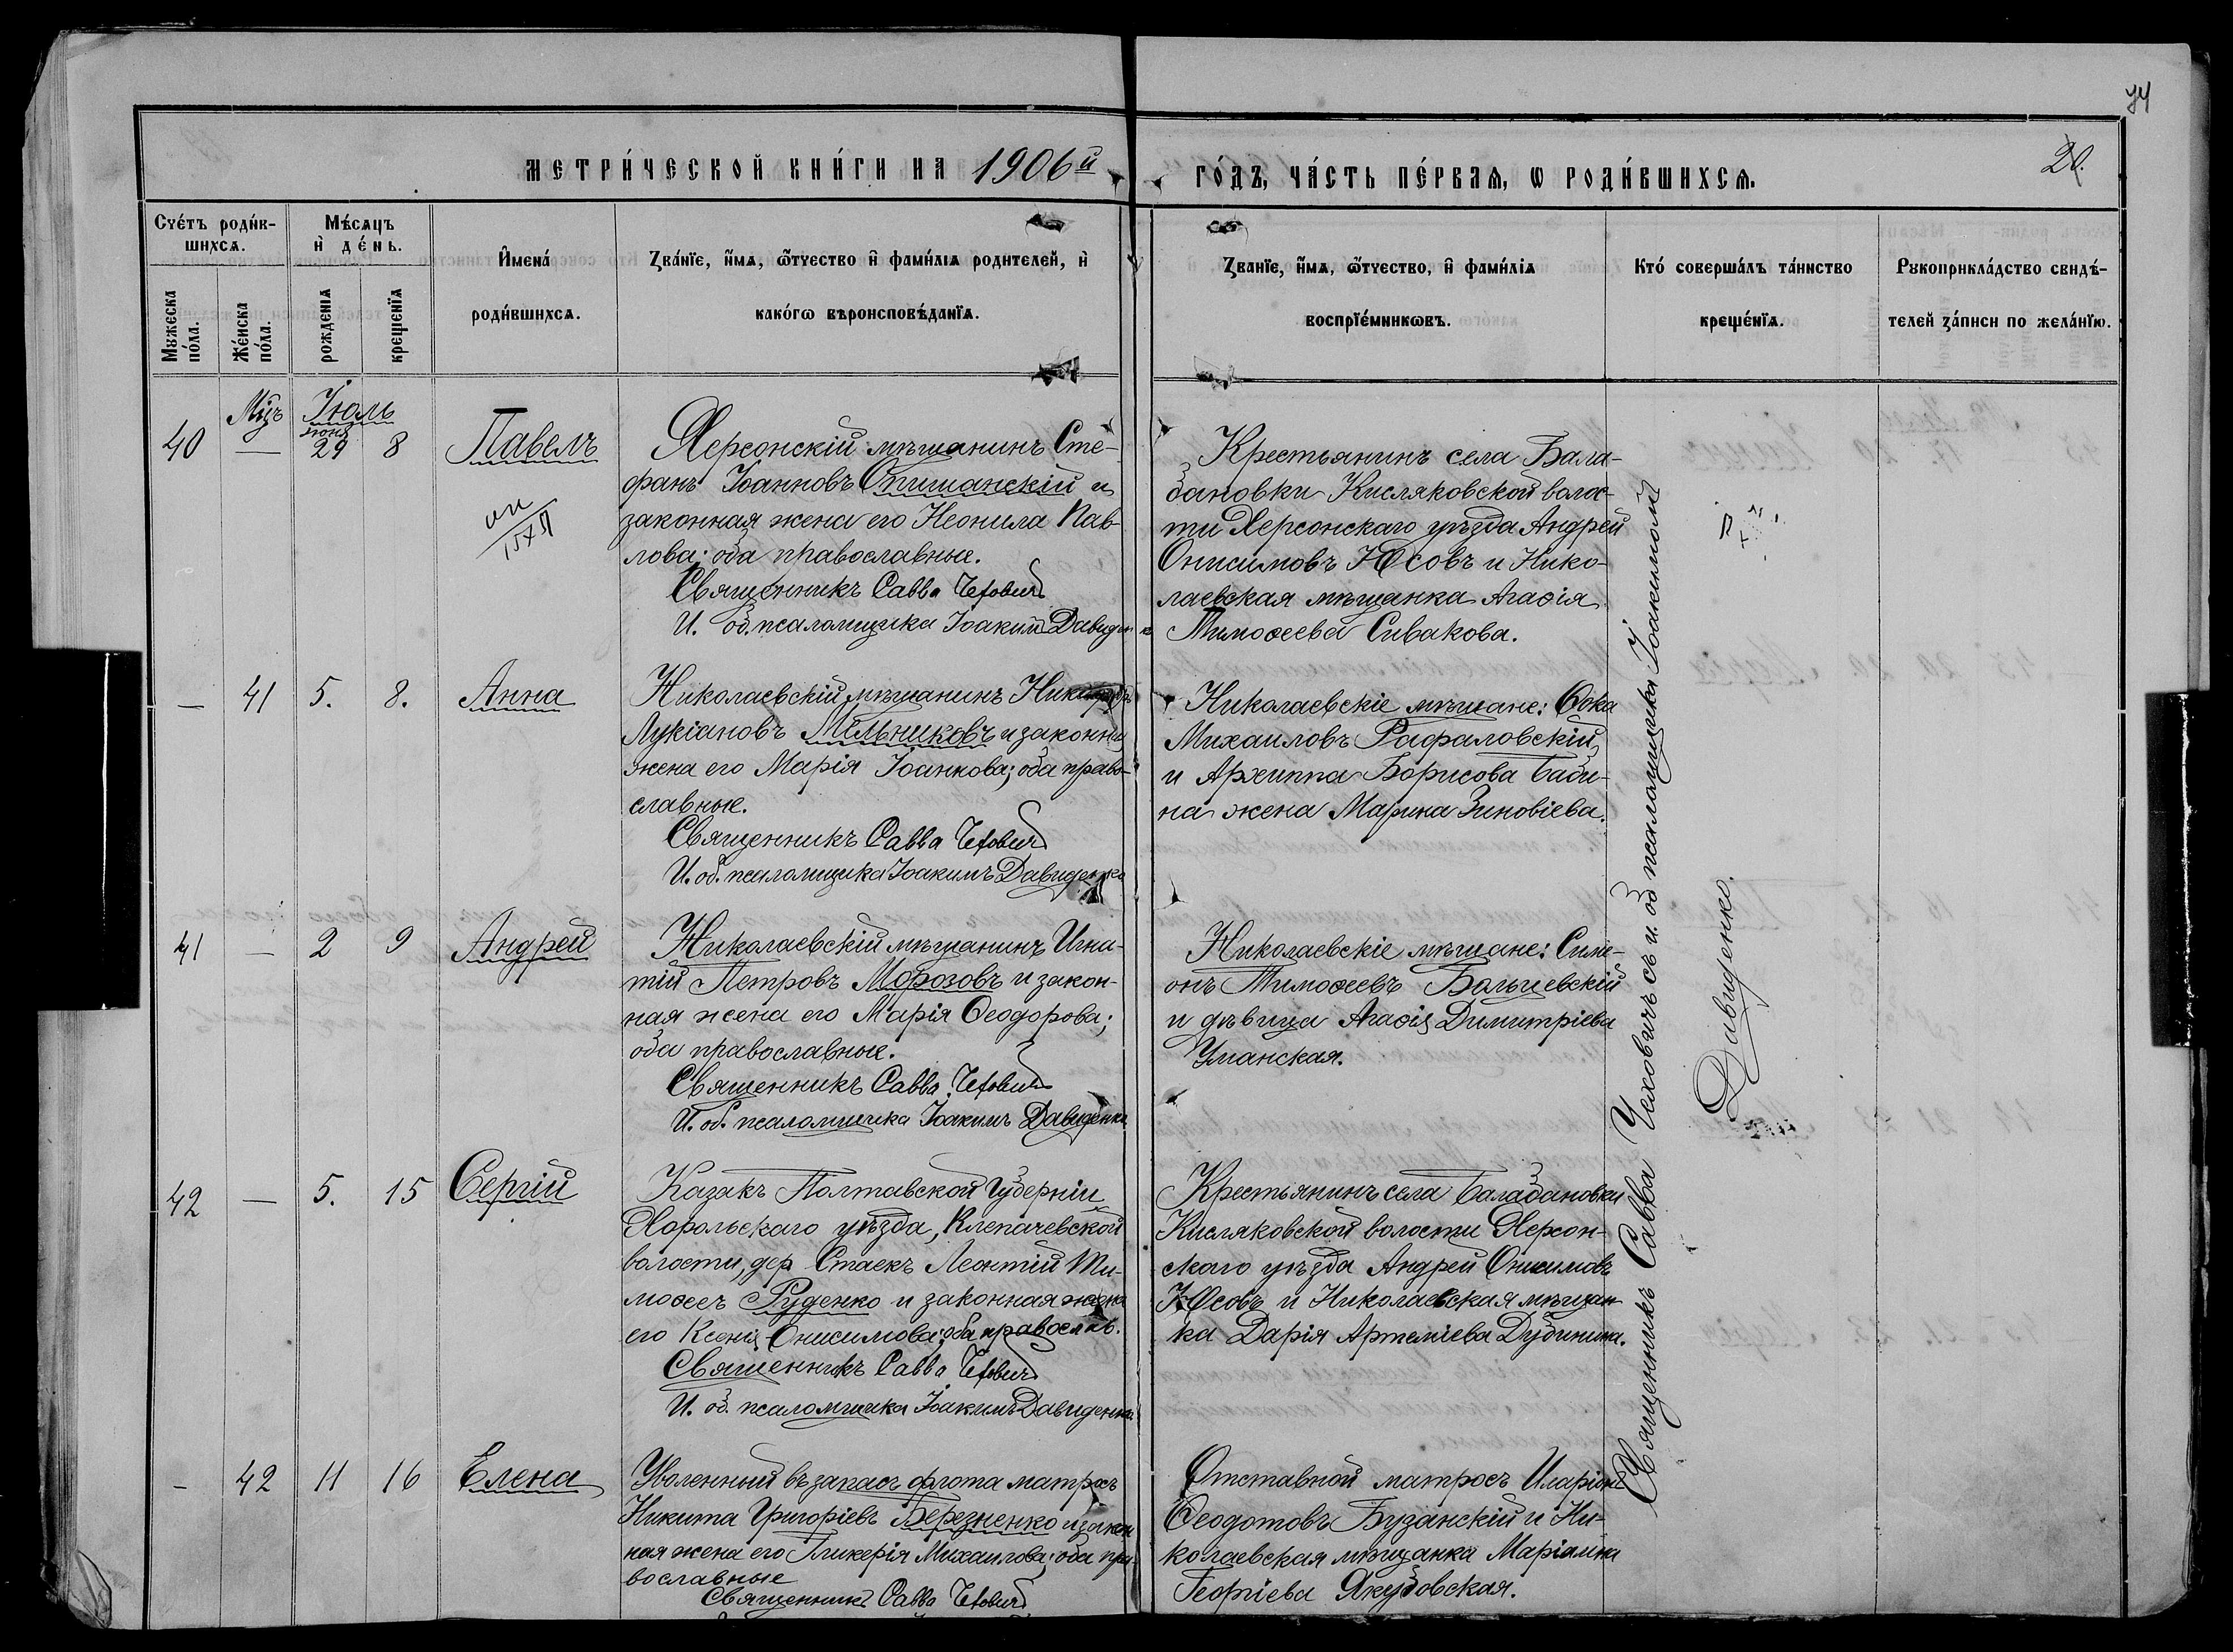 74
МЕТРИ́ЧЕСКОЙ КНИ́ГИ НА 1906й ГО́ДЪ, ЧА́СТЬ ПЕ́РВАѦ, Ѡ РОДИ́ВШИХСѦ.
20.
Сче́тъ роди́вшихсѧ.
Мѣ́сѧцъ и҆ де́нь.
Мꙋжеска по́ла.
Же́нска по́ла.
рожденїѧ
крещенїѧ
И҆мена́ роди́вшихсѧ.
Зва́нїе, и҆́мѧ, ѻ҆́тчество и҆ фами́лїѧ родителей, и҆
како́гѡ вѣроисповѣ́данїѧ.
Зва́нїе, и҆́мѧ, ѻ҆́тчество, и҆ фами́лїѧ
воспрїе́мникѡвъ.
Кто́ соверша́лъ та́инство
креще́нїѧ.
Рꙋкоприкла́дство свидѣ́-
телей за́писи по жела́нїю.
Мѣц Іюль
40 — іюня 29 8 Павелъ
Херсонскій мѣщанинъ Сте-
фанъ Іоанновъ Опишанскій и
законная жена его Неонила Пав-
лова; оба православные.
Священникъ Савва Чехович
И. об. псаломщика Іоаким Давиденко
Крестьянинъ села Бала-
бановки Кисляковской волос-
ти Херсонскаго уѣзда Андрей
Онисимовъ Юсовъ и Нико-
лаевская мѣщанка Агаѳія
Тимоѳеева Сивакова.
— 41 5. 8. Анна
Николаевскій мѣщанинъ
Лукіановъ Мельниковъ и законн
жена его Марія Іоаннова; оба право-
славные.
Священникъ Савва Чехович
И. об. псаломщика Іоакимъ Давиденко
Николаевскіе мѣщане: Ѳока
Михаиловъ Рафаловскій
и Архиппа Борисова Баби-
на жена Марина Зиновіева.
41 — 2 9 Андрей
Николаевскій мѣщанинъ Игна-
тій Петровъ Морозовъ и закон-
ная жена его Марія Ѳеодорова;
оба православные.
Священникъ Савва Чехович
И. об. псаломщика Іоакимъ Давиденко
Николаевскіе мѣщане: Симе-
онъ Тимоѳеевъ Больчевскій
и дѣвица Агаѳія Димитріева
Уманская.
42 — 5. 15 Сергій
Казакъ Полтавской Губерніи
Хорольскаго уѣзда, Клепачевской
волости, дер. Стаекъ Леонтій Ти-
моѳеевъ Руденко и законная жена
его Ксенія Онисимова; оба православ.
Священникъ Савва Чехович
И. об. псаломщика Іоакимъ Давиденко
Крестьянинъ села Балабановки
Кисляковской волости Херсон-
скаго уѣзда Андрей Онисимовъ
Юсовъ и Николаевская мѣщан-
ка Дарія Артеміева Дубинина.
— 42 11 16 Елена
Уволенный въ запасъ флота матросъ
Никита Григоріевъ Березненко и закон
ная жена его Гликерія Михаилова; оба пра-
вославные
Священникъ Савва Чехович
Отставной матросъ Иларіонъ
Ѳеодотовъ Бузанскій и Ни-
колаевская мѣщанка Маріамна
Георгіева Якубовская.
Священникъ Савва Чеховичъ съ и. об псаломщика Іоакимомъ
Давиденко.